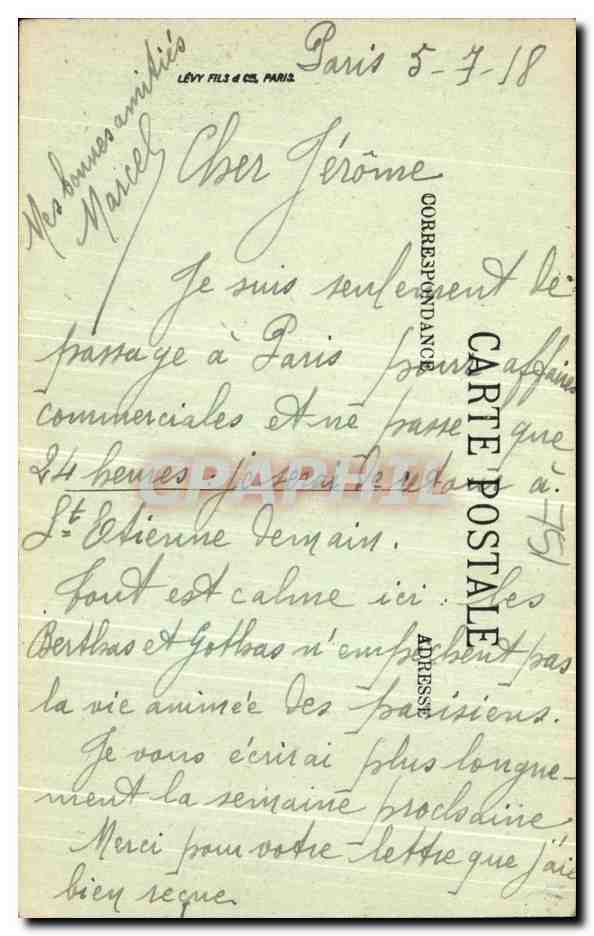 Paris 5-7-18
LÉVY FILS & Cie, PARIS.
Mes bonnes amitiés
Marcel
Cher Jérôme
Je suis seulement de
passage à Paris pour affaires
commerciales et ne passe que
24 heures. je serai de retour à
St Etienne demain.
Tout est calme ici. Les
Berthas et Gothas n'empêchent pas
la vie animée des parisiens.
Je vous écrirai plus longue-
ment la semaine prochaine
Merci pour votre lettre que j'ai
bien reçue
CORRESPONDANCE
CARTE POSTALE
ADRESSE
751